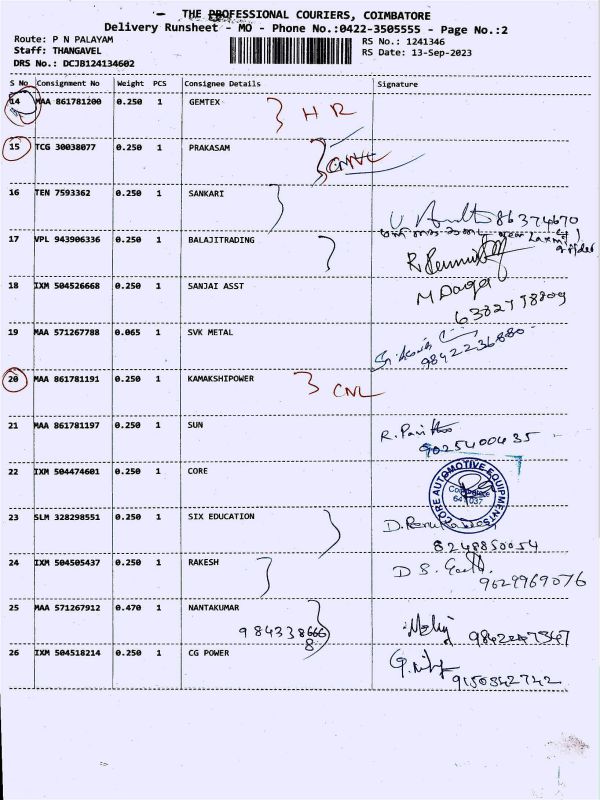 THE PROFESSIONAL COURIERS, COIMBATORE
Delivery Runsheet - MO - Phone No.:0422-3505555 - Page No.:2
Route: P N PALAYAM
RS No.: 1241346
Staff: THANGAVEL
RS Date: 13-Sep-2023
DRS No.: DCJB124134602
S No Consignment No Weight PCS Consignee Details Signature
14 MAA 861781200 0.250 1 GEMTEX H R
15 TCG 30038077 0.250 1 PRAKASAM
16 TEN 7593362 0.250 1 SANKARI
86374670
near Laxmi
17 VPL 943906336 0.250 1 BALAJITRADING
18 IXM 504526668 0.250 1 SANJAI ASST M Daga
6382798809
19 MAA 571267788 0.065 1 SVK METAL
9842236880
20 MAA 861781191 0.250 1 KAMAKSHIPOWER CNL
21 MAA 861781197 0.250 1 SUN
9025400435
22 IXM 504474601 0.250 1 CORE
CORE AUTOMOTIVE EQUIPMENTS
Coimbatore
641 037
23 SLM 328298551 0.250 1 SIX EDUCATION
8248850054
24 IXM 504505437 0.250 1 RAKESH
9629969076
25 MAA 571267912 0.470 1 NANTAKUMAR
984338666
8
26 IXM 504518214 0.250 1 CG POWER
9150342742